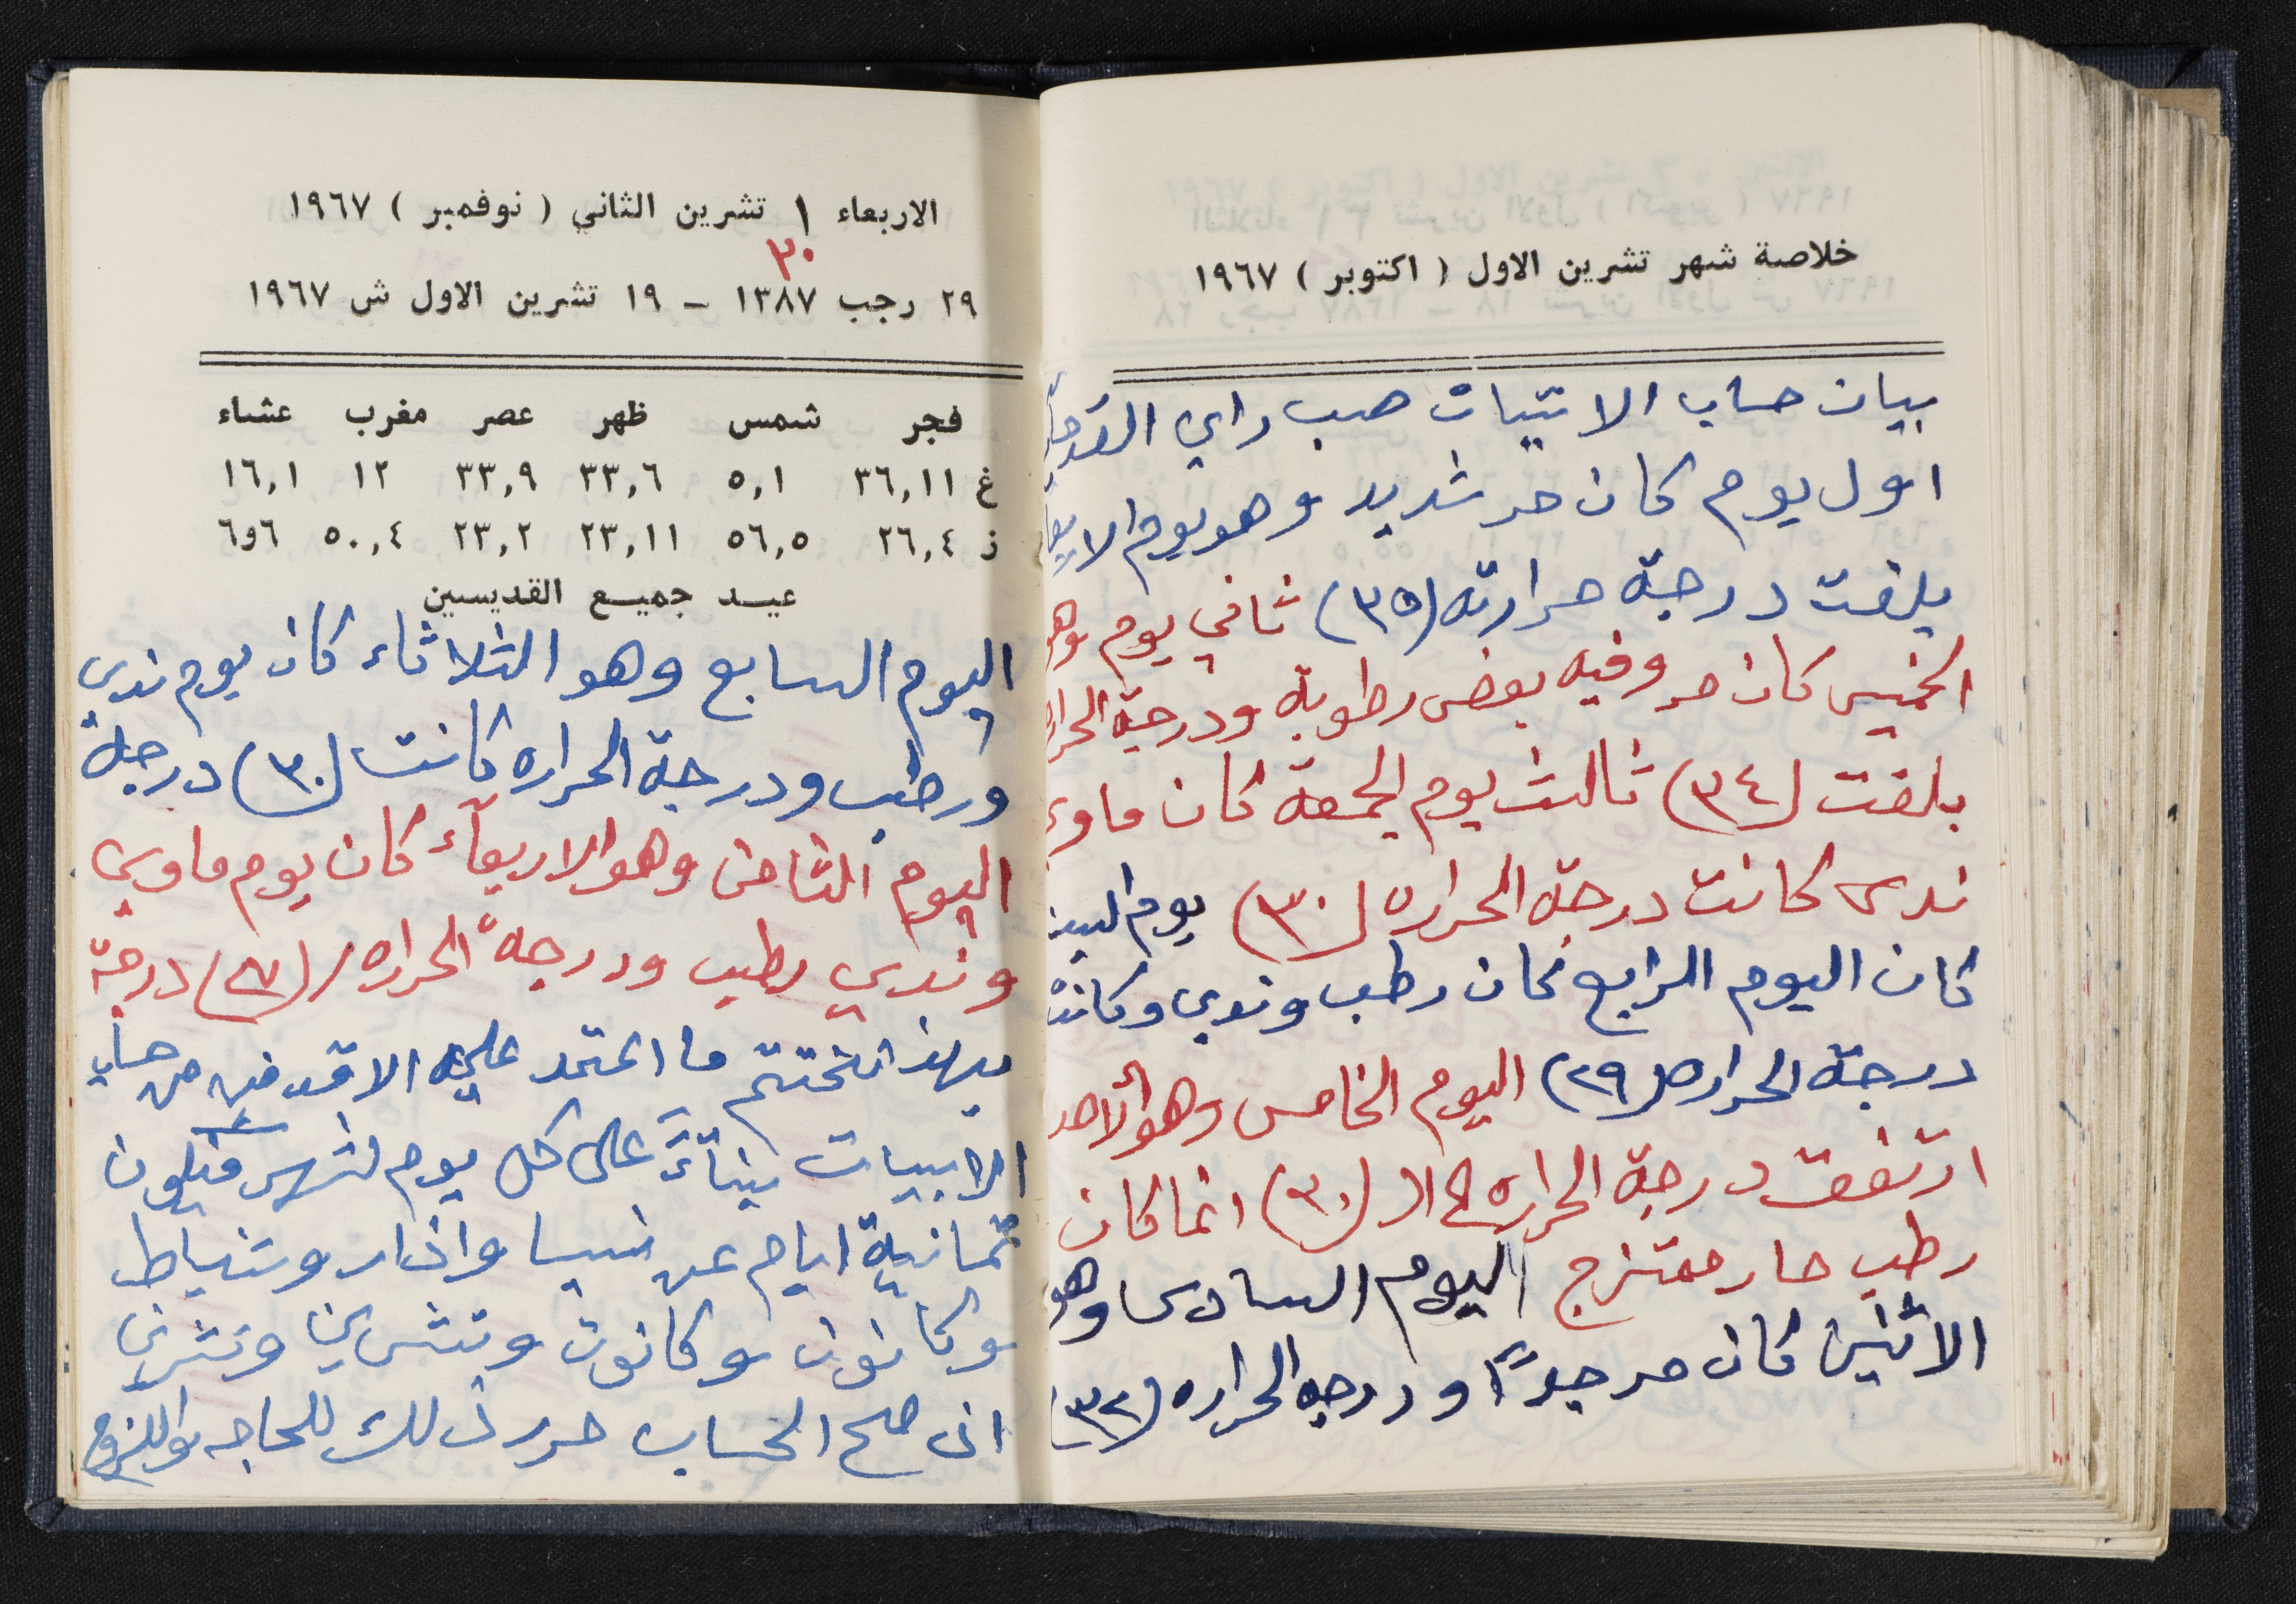 خلاصة شهر تشرين الاول ( اكتوبر ) ١٩٦٧
بيان حساب الاتتيات حسب راي
اول يوم كان حر شديد وهو يوم
بلغت درجة حرارته (٣٥) ثاني يوم وهو
الخميس كان حر وفيه بعض رطوبة ودرجة
بلغت (٣٤) ثالث يوم الجمعة كان ماوي
ندي كانت درجة الحراره (٣٠) يوم
كان اليوم الرابع كان رطب وندي وكانت
درجة الحراره (٢٩) اليوم الخامس وهو الأحد
ارتفعت درجة الحراره الى الـ (٣٠) انما كان
رطب حار ممتزج اليوم السادس وهو
الاثنين كان حر جداً ودرجة الحراره (٣٢)
الاربعاء ١ تشرين الثاني ( نوفمبر ) ١٩٦٧
٣٠
٢٩ رجب ١٣٨٧ – ١٩ تشرين الاول ش ١٩٦٧
فجر شمس ظهر عصر مغرب عشاء
غ ٣٦,١١ ٥,١ ٣٣,٦ ٣٣,٩ ١٢ ١٦,١
ز ٢٦,٤ ٥٦,٥ ٢٣,١١ ٢٣,٢ ٥٠,٤ ٦و٦
عيد جميع القديسين
اليوم السابع وهو الثلاثاء كان يوم ندي
ورطب ودرجة الحراره كانت (٣٠) درجة
اليوم الثامن وهو الاربعآء كان يوم ماوي
وندي رطب ودرجة الحراره (٢٧) درجة
بهذا نختتم ما اعتمد عليه الاقدمين من حساب
بنآءً على كل يوم لشهر فيكون
ثمانية ايام عن نيسا واذار وشباط
وكانون وكانون وتشرين وتشرين
ان صح الحساب حرر ذلك للحاجه واللزوم